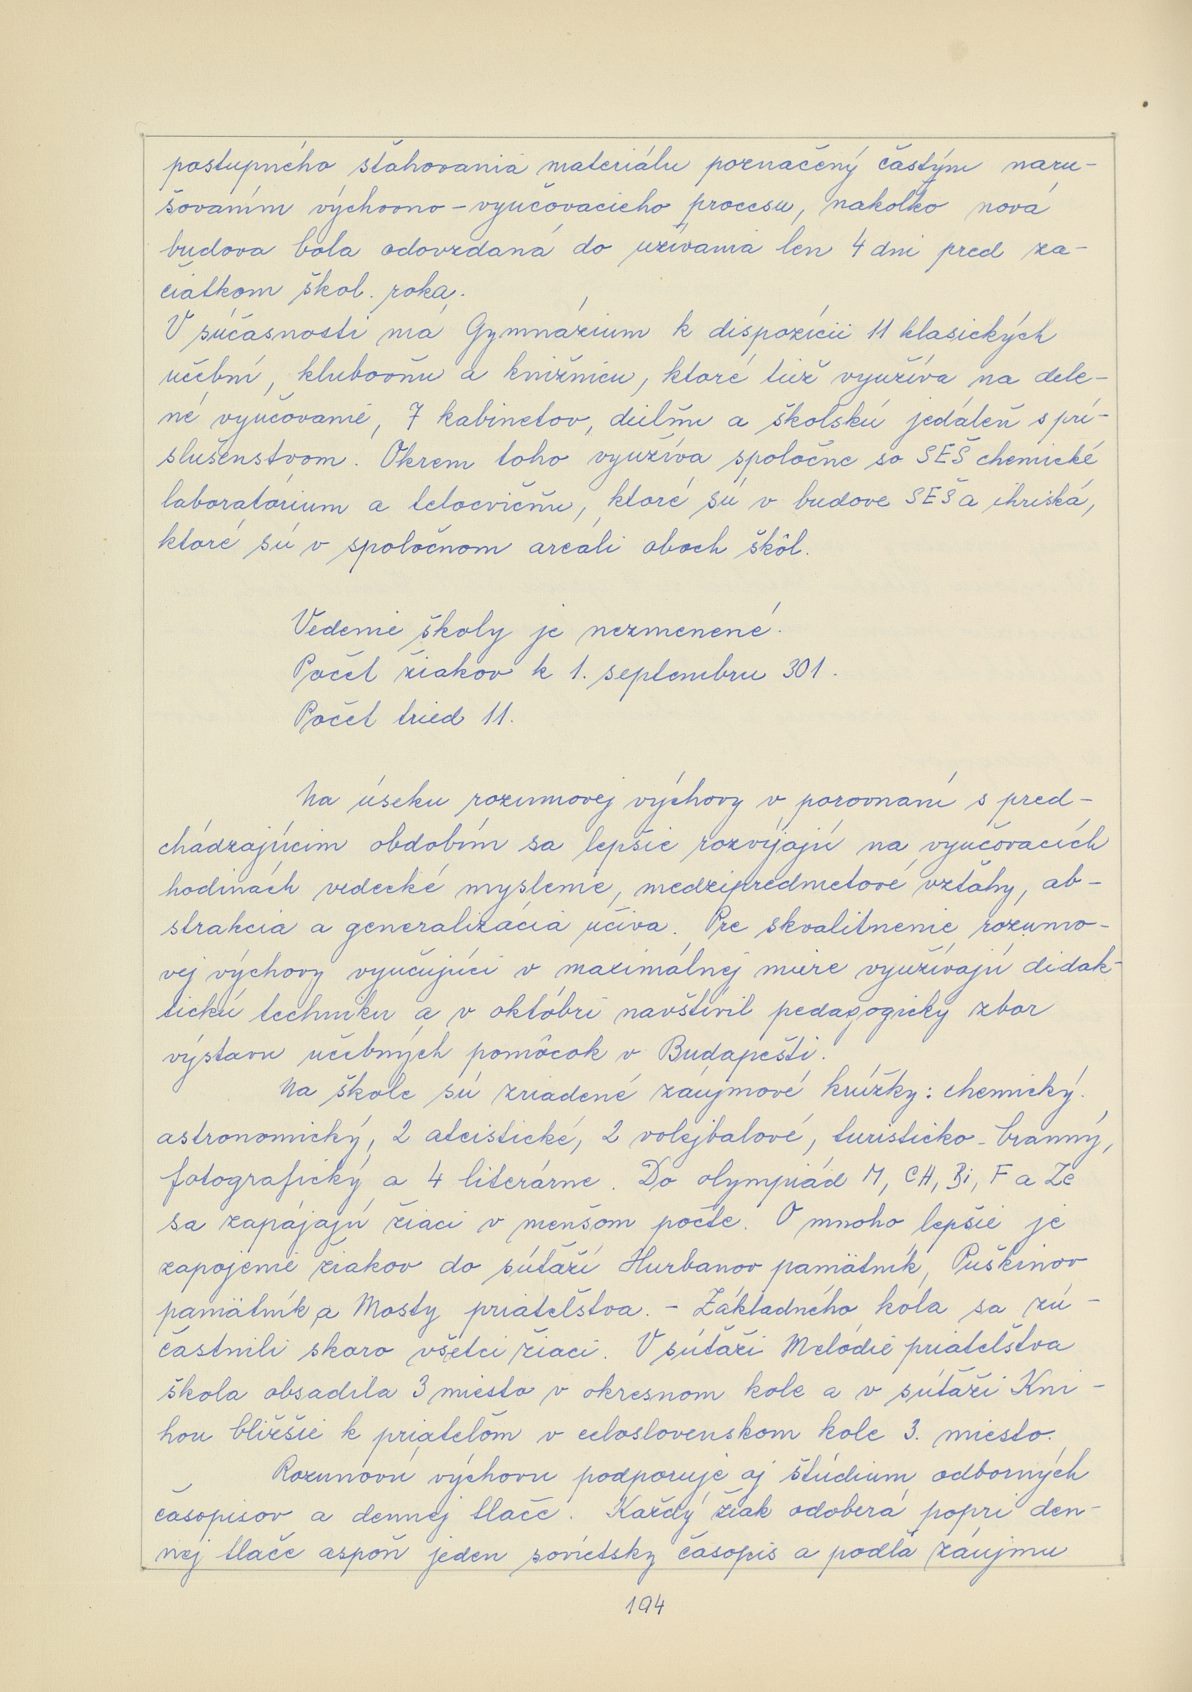 postupného sťahovania materiálu poznačený častým naru-
šovaním výchovno-vyučovacieho procesu, nakoľko nová
budova bola odovzdaná do užívania len 4 dni pred za-
čiatkom škol. roka.
V súčasnosti má Gymnázium k dispozícii 11 klasických
učební, klubovňu a knižnicu, ktoré tiež využíva na dele-
né vyučovanie, 7 kabinetov, dielňu a školskú jedáleň s prí-
slušenstvom. Okrem toho využíva spoločne so SEŠ chemické
laboratórium a telocvičňu, ktoré sú v budove SEŠ a ihriská,
ktoré sú v spoločnom areáli oboch škôl.
Vedenie školy je nezmenené.
Počet žiakov k 1. septembru 301.
Počet tried 11.
Na úseku rozumovej výchovy v porovnaní s pred-
chádzajúcim obdobím sa lepšie rozvíjajú na vyučovacích
hodinách vedecké myslenie, medzipredmetové vzťahy, ab-
strakcia a generalizácia učiva. Pre skvalitnenie rozumo-
vej výchovy vyučujúci v maximálnej miere využívajú didak-
tickú techniku a v októbri navštívil pedagogický zbor
výstavu učebných pomôcok v Budapešti.
Na škole sú zriadené záujmové krúžky: chemický.
astronomický, 2 ateistické, 2 volejbalové, turisticko-branný,
fotografický a 4 literárne. Do olympiád M, CH, Bi, F a Ze
sa zapájajú žiaci v menšom počte. O mnoho lepšie je
zapojenie žiakov do súťaží Hurbanov pamätník, Puškinov
pamätník a Mosty priateľstva. - Základného kola sa zú-
častnili skoro všetci žiaci. V súťaži Melódie priateľstva
škola obsadila 3 miesto v okresnom kole a v súťaži Kni-
hou bližšie k priateľom v celoslovenskom kole 3. miesto.
Rozumovú výchovu podporuje aj štúdium odborných
časopisov a dennej tlače. Každý žiak odoberá popri den-
nej tlače aspoň jeden sovietsky časopis a podľa záujmu
194